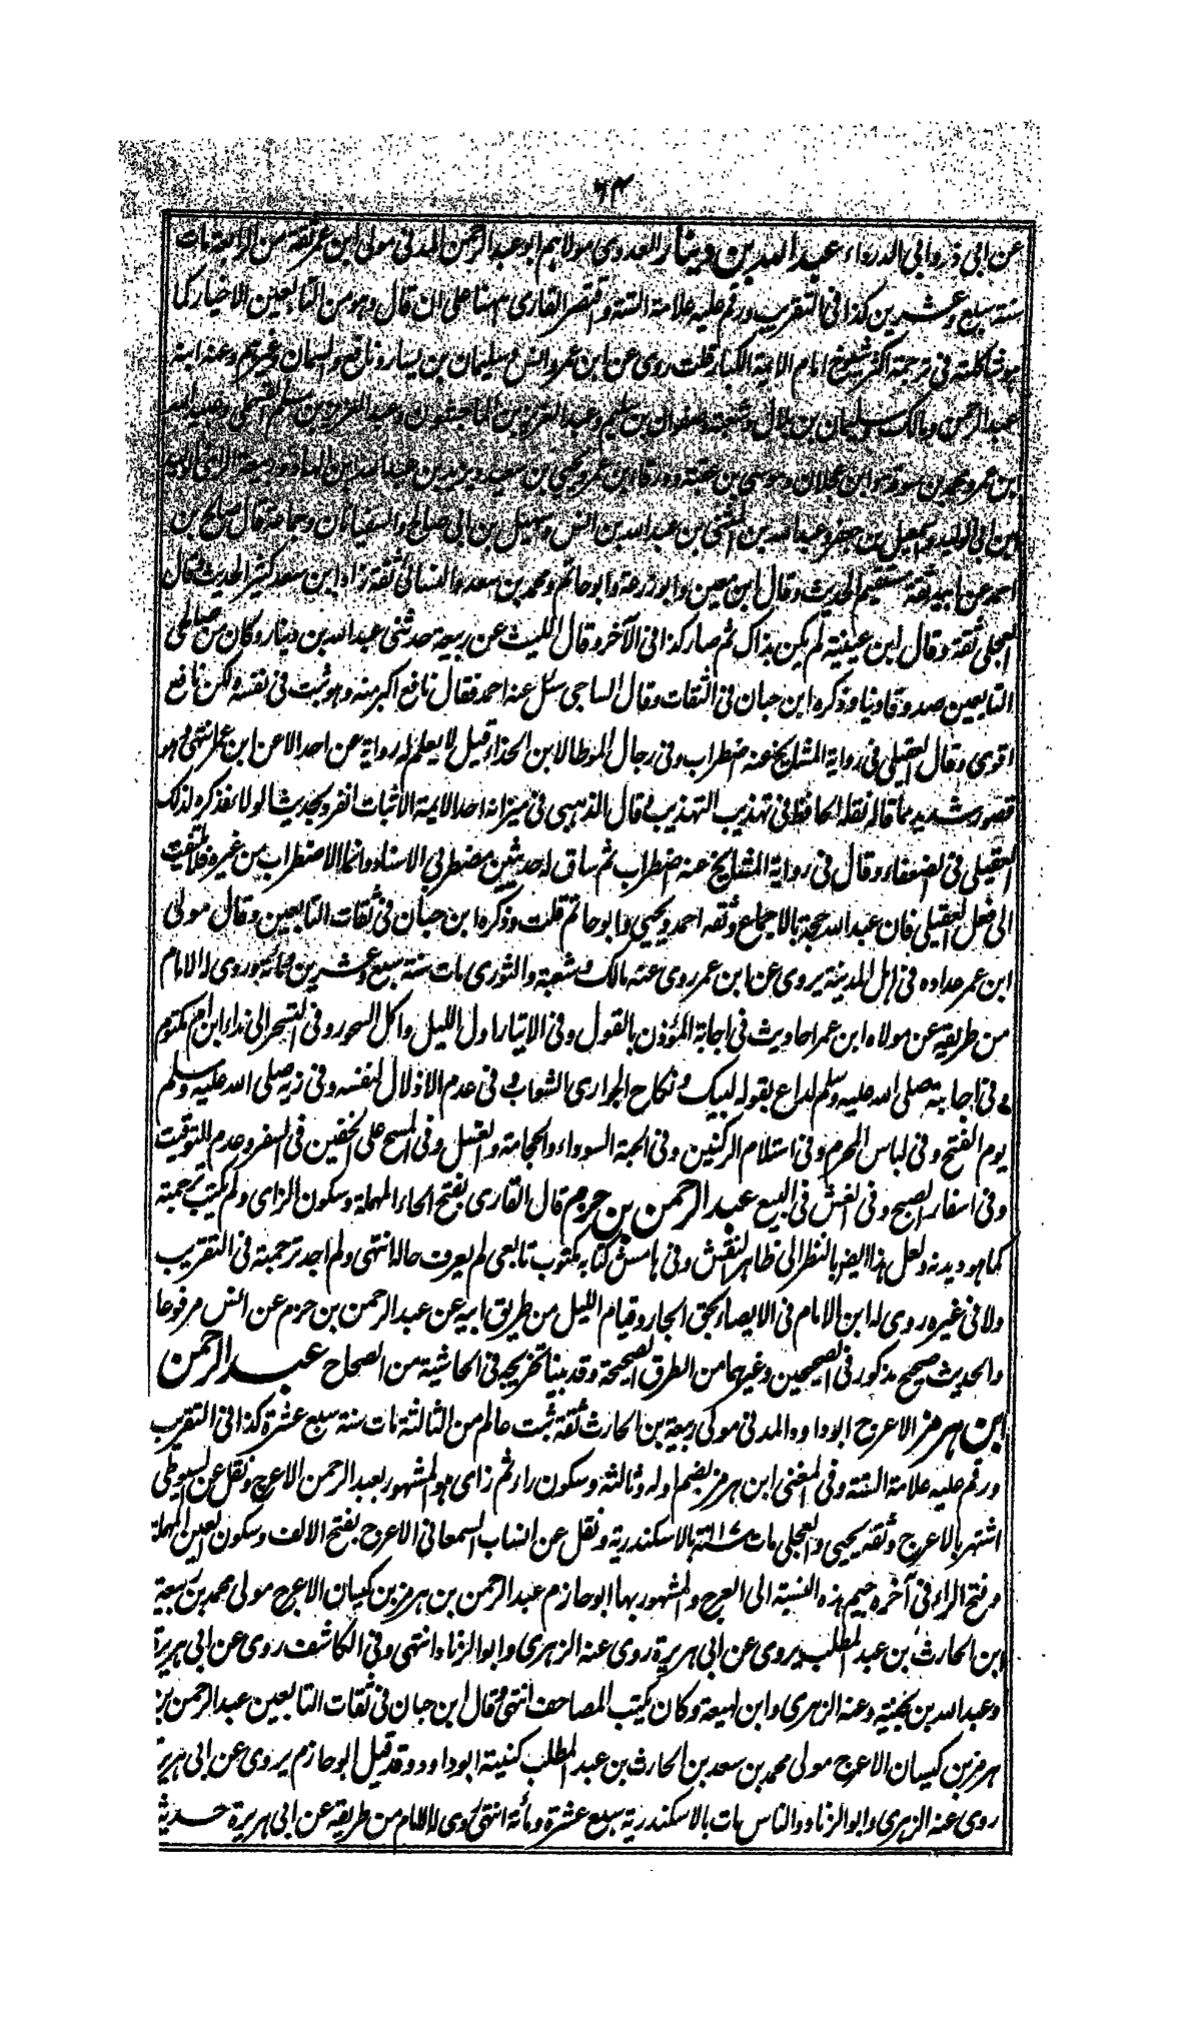 ٦٣
عن ابى ذر وابى الدرداء عبد الله بن دينار العدوى مولاهم ابو عبد الرحمن المدنى مولى ابن عمر ثقة من الرابعة مات
سنة سبع وعشرين كذا فى التقريب ورقم عليه علامة الستة واقتصر القارى ههنا على ان قال وهو من التابعين الاخيار كما
هو شاكلته فى ترجمة اكثر شيوخ امام الايمة الكبار قلت روى عن ابن عمر وانس وسليمان بن يسار ونافع وغيرهم وعنه ابنه
عبد الرحمن ومالك وسليمان بن بلال وشعبة وصفوان بن سليم وعبد العزيز بن الماجشون وعبد العزيز بن مسلم القسملى وعبيد الله
ابن عمر ومحمد بن سوقة وابن عجلان وموسى بن عقبة وورقاء بن عمر ويحيى بن سعيد ويزيد بن عبد الله بن الهاد وربيعة الرأى
ابن ابى الوليد واسمعيل بن جعفر وعبد الله بن المثنى بن عبد الله بن انس وسهيل بن ابى صالح والسفيانان وجماعة قال صالح بن
احمد عن ابيه ثقة مستقيم الحديث وقال ابن معين وابو زرعة وابو حاتم ومحمد بن سعد والنسائى ثقة زاد ابن سعد كثير الحديث وقال
العجلى ثقة وقال ابن عيينة لم يكن بذاك ثم صار كذا فى الآخر وقال الليث عن ربيعة حدثنى عبد الله بن دينار وكان من صالحى
التابعين صدوقا دينا وذكره ابن حبان فى الثقات وقال الساجى سئل عنه احمد فقال نافع اكبر منه وهو ثبت فى نفسه ولكن نافع
اقوى وقال العقيلى فى رواية المشايخ عنه اضطراب وفى رجال الموطا لابن الحذاء قيل لا يعلم له رواية عن احد الا عن ابن عمر انتهى وهو
قصور شديد مما قاله نقله الحافظ فى تهذيب التهذيب وقال الذهبى فى ميزانه احد الايمة الاثبات انفرد بحديث الولاء فذكره لذلك
العقيلى فى الضعفاء وقال فى رواية المشايخ عنه اضطراب ثم ساق له حديثين مضطربى الاسناد وانما الاضطراب من غيره فلا يلتفت
الى فعل العقيلى فان عبد الله حجة بالاجماع وثقه احمد ويحيى وابو حاتم قلت وذكره ابن حبان فى ثقات التابعين وقال مولى
ابن عمر عداده فى اهل المدينة يروى عن ابن عمر روى عنه مالك وشعبة والثورى مات سنة سبع وعشرين ومائة وروى له الامام
من طريقه عن مولاه ابن عمر احاديث فى اجابة المؤذن بالقول وفى الايتار اول الليل واكل السحور وفى التسحر الى نداء ابن ام مكتوم
وفى اجابته صلى الله عليه وسلم لداع بقوله لبيك ونكاح الجوارى الشواب وفى عدم الاذلال لنفسه وفى زيه صلى الله عليه وسلم
يوم الفتح وفى لباس المحرم وفى استلام الركنين وفى الحبة السوداء والحجامة والعسل وفى المسح على الخفين فى السفر وعدم التوقيت
وفى اسفار الصبح وفى الغش فى البيع عبد الرحمن بن حزم قال القارى بفتح الحاء المهملة وسكون الزاى ولم يكتب ترجمة
كما هو ديدنه ولعل هذا ايضر بالنظر الى ظاهر النقش وفى هامش كتابه مكتوب تابعى لم يعرف حاله انتهى ولم اجد ترجمته فى التقريب
ولا فى غيره روى له ابن الامام فى الايصاء بحق الجار وقيام الليل من طريق ابيه عن عبد الرحمن بن حزم عن انس مرفوعا
والحديث صحيح مذكور فى الصحيحين وغيرهما من الطرق الصحيحة وقد بينا تخريجه فى الحاشية من الصحاح عبد الرحمن
ابن هرمز الاعرج ابو داود المدنى مولى ربيعة بن الحارث ثقة ثبت عالم من الثالثة مات سنة سبع عشرة كذا فى التقريب
ورقم عليه علامة الستة وفى المغنى ابن هرمز بضم اوله وثالثه وسكون راء ثم زاى هو المشهور بعبد الرحمن الاعرج ونقل عن السيوطى
اشتهر بالاعرج وثقه يحيى والعجلى مات سنة ١١٧ بالاسكندرية ونقل عن انساب السمعانى الاعرج بفتح الالف وسكون العين المهملة
وفتح الراء فى آخره جيم هذه النسبة الى العرج والمشهور بها ابو حازم عبد الرحمن بن هرمز بن كيسان الاعرج مولى محمد بن ربيعة
ابن الحارث بن عبد المطلب يروى عن ابى هريرة روى عنه الزهرى وابو الزناد انتهى وفى الكاشف روى عن ابى هريرة
وعبد الله بن بحينة وعنه الزهرى وابن لهيعة وكان يكتب المصاحف انتهى وقال ابن حبان فى ثقات التابعين عبد الرحمن بن
هرمز بن كيسان الاعرج مولى محمد بن سعد بن الحارث بن عبد المطلب كنيته ابو داود وقد قيل ابو حازم يروى عن ابى هريرة
روى عنه الزهرى وابو الزناد والناس مات بالاسكندرية سبع عشرة ومائة انتهى روى له الامام من طريقه عن ابى هريرة حديث